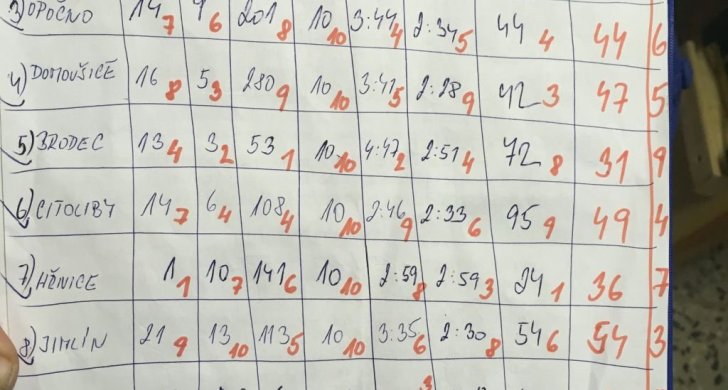 3) OPOČNO 14 7 9 6 201 8 10 10 3:44 4 2:34 5 44 4 44 6
4) DOMOUŠICE 16 8 5 3 280 9 10 10 3:41 5 2:28 9 42 3 47 5
5) BRODEC 13 4 3 2 53 1 10 10 4:47 2 2:51 4 72 8 31 9
6) CITOLIBY 14 7 6 4 108 4 10 10 2:46 9 2:33 6 95 9 49 4
7) HŘNICE 1 1 10 7 141 6 10 10 2:59 8 2:59 3 24 1 36 7
8) JIMLÍN 21 9 13 10 113 5 10 10 3:35 6 2:30 8 54 6 54 3